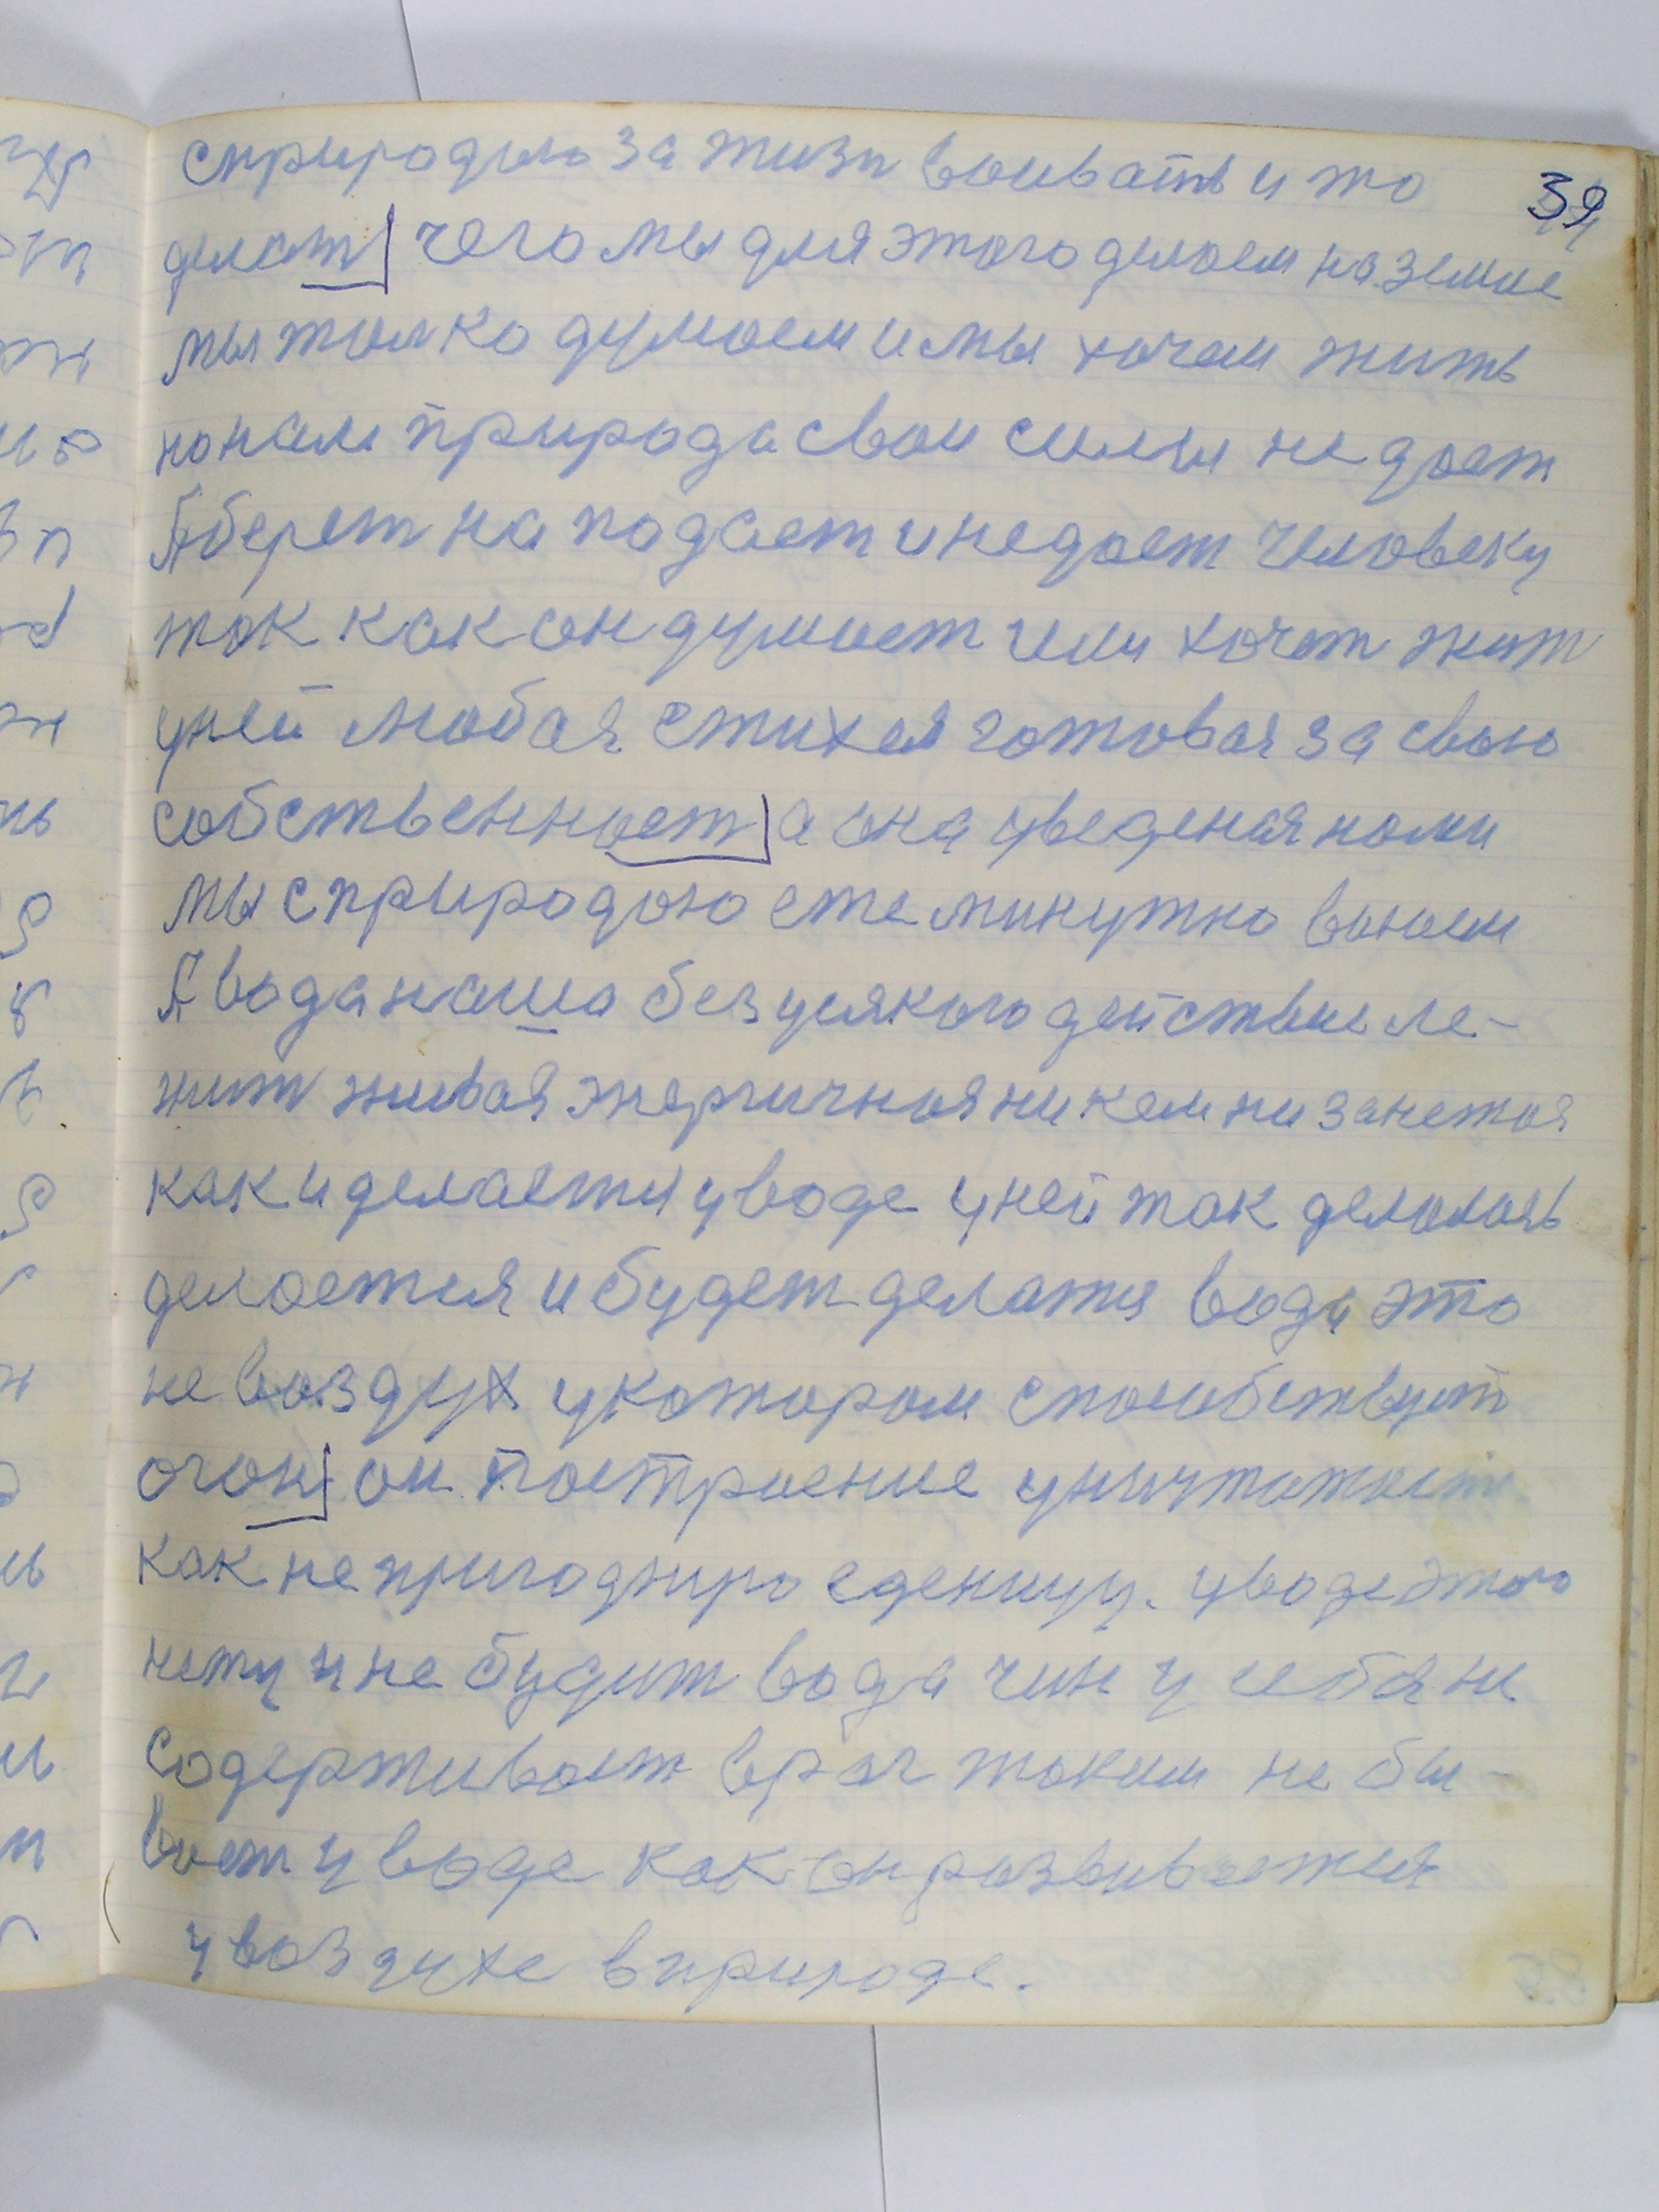 39
сприродою за жизн воивать и то
делат чего мы для этого делоем на земле
мы толко думоем и мы хочем жить
нонам природа свои силы не дает
А берет на подает и недоет человеку
ток как он думоет или хочет жит
уней любая стихея готовая за свою
собственност а она уведеная номи
мы с природою ежеминутно воюем
А вода наша без усякого действие ле-
жит живая энергичноя ни кем ни занетоя
как и делается уводе уней ток делолось
делоется и будет делатся вода это
не воздух укотором способствует
огон он построение уничтожоет
как не пригодную еденицу. уводе этого
нету и не будит вода чин у себя ни
содерживоет враг токим не бы-
воет у воде как он розвивоется
у воздухе в природе.